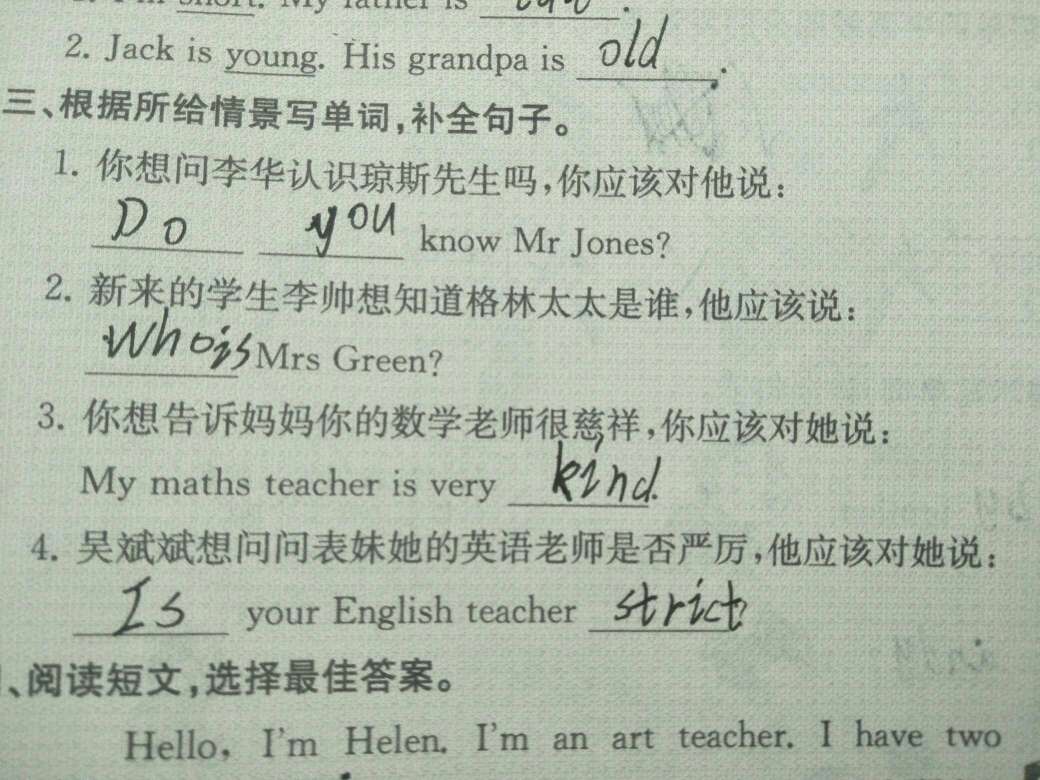 1. I'm short. My father is
2. Jack is young. His grandpa is old.
三、根据所给情景写单词,补全句子。
1. 你想问李华认识琼斯先生吗,你应该对他说:
Do you know Mr Jones?
2. 新来的学生李帅想知道格林太太是谁,他应该说:
Who is Mrs Green?
3. 你想告诉妈妈你的数学老师很慈祥,你应该对她说:
My maths teacher is very kind.
4. 吴斌斌想问问表妹她的英语老师是否严厉,他应该对她说:
Is your English teacher strict?
、阅读短文,选择最佳答案。
Hello, I'm Helen. I'm an art teacher. I have two